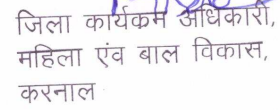 जिला कार्यक्रम अधिकारी,
महिला एंव बाल विकास,
करनाल